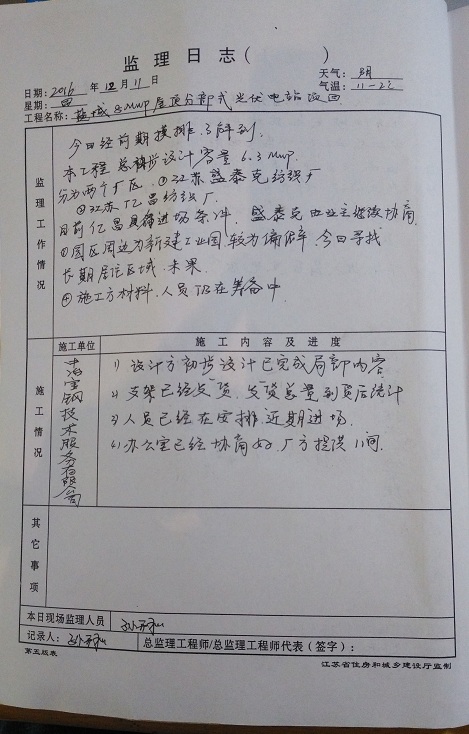 监理日志（　　　）
日期：2016 年 12 月 11 日 天气：阴
星期：日 气温：11-2℃
工程名称：盐城8MWP屋顶分部式光伏电站项目
监理工作情况
今日经前期摸排，了解到
本工程总初步设计容量6.3MWP.
分为两个厂区，①江苏盛泰克纺织厂
②江苏亿昌纺织厂.
目前亿昌具备进场条件，盛泰克业主继续协商
①园区周边为新建工业园，较为偏僻，今日寻找
长期居住区域，未果.
④施工方材料、人员仍在筹备中
施工情况
施工单位 施工内容及进度
上海宝钢技术服务有限公司
1）设计方初步设计已完成局部内容
2）支架已经发货，发货总量到货后统计
3）人员已经在安排，近期进场.
4）办公室已经协商好，厂方提供1间.
其它事项
本日现场监理人员
记录人： 总监理工程师/总监理工程师代表（签字）：
第五版表 江苏省住房和城乡建设厅监制